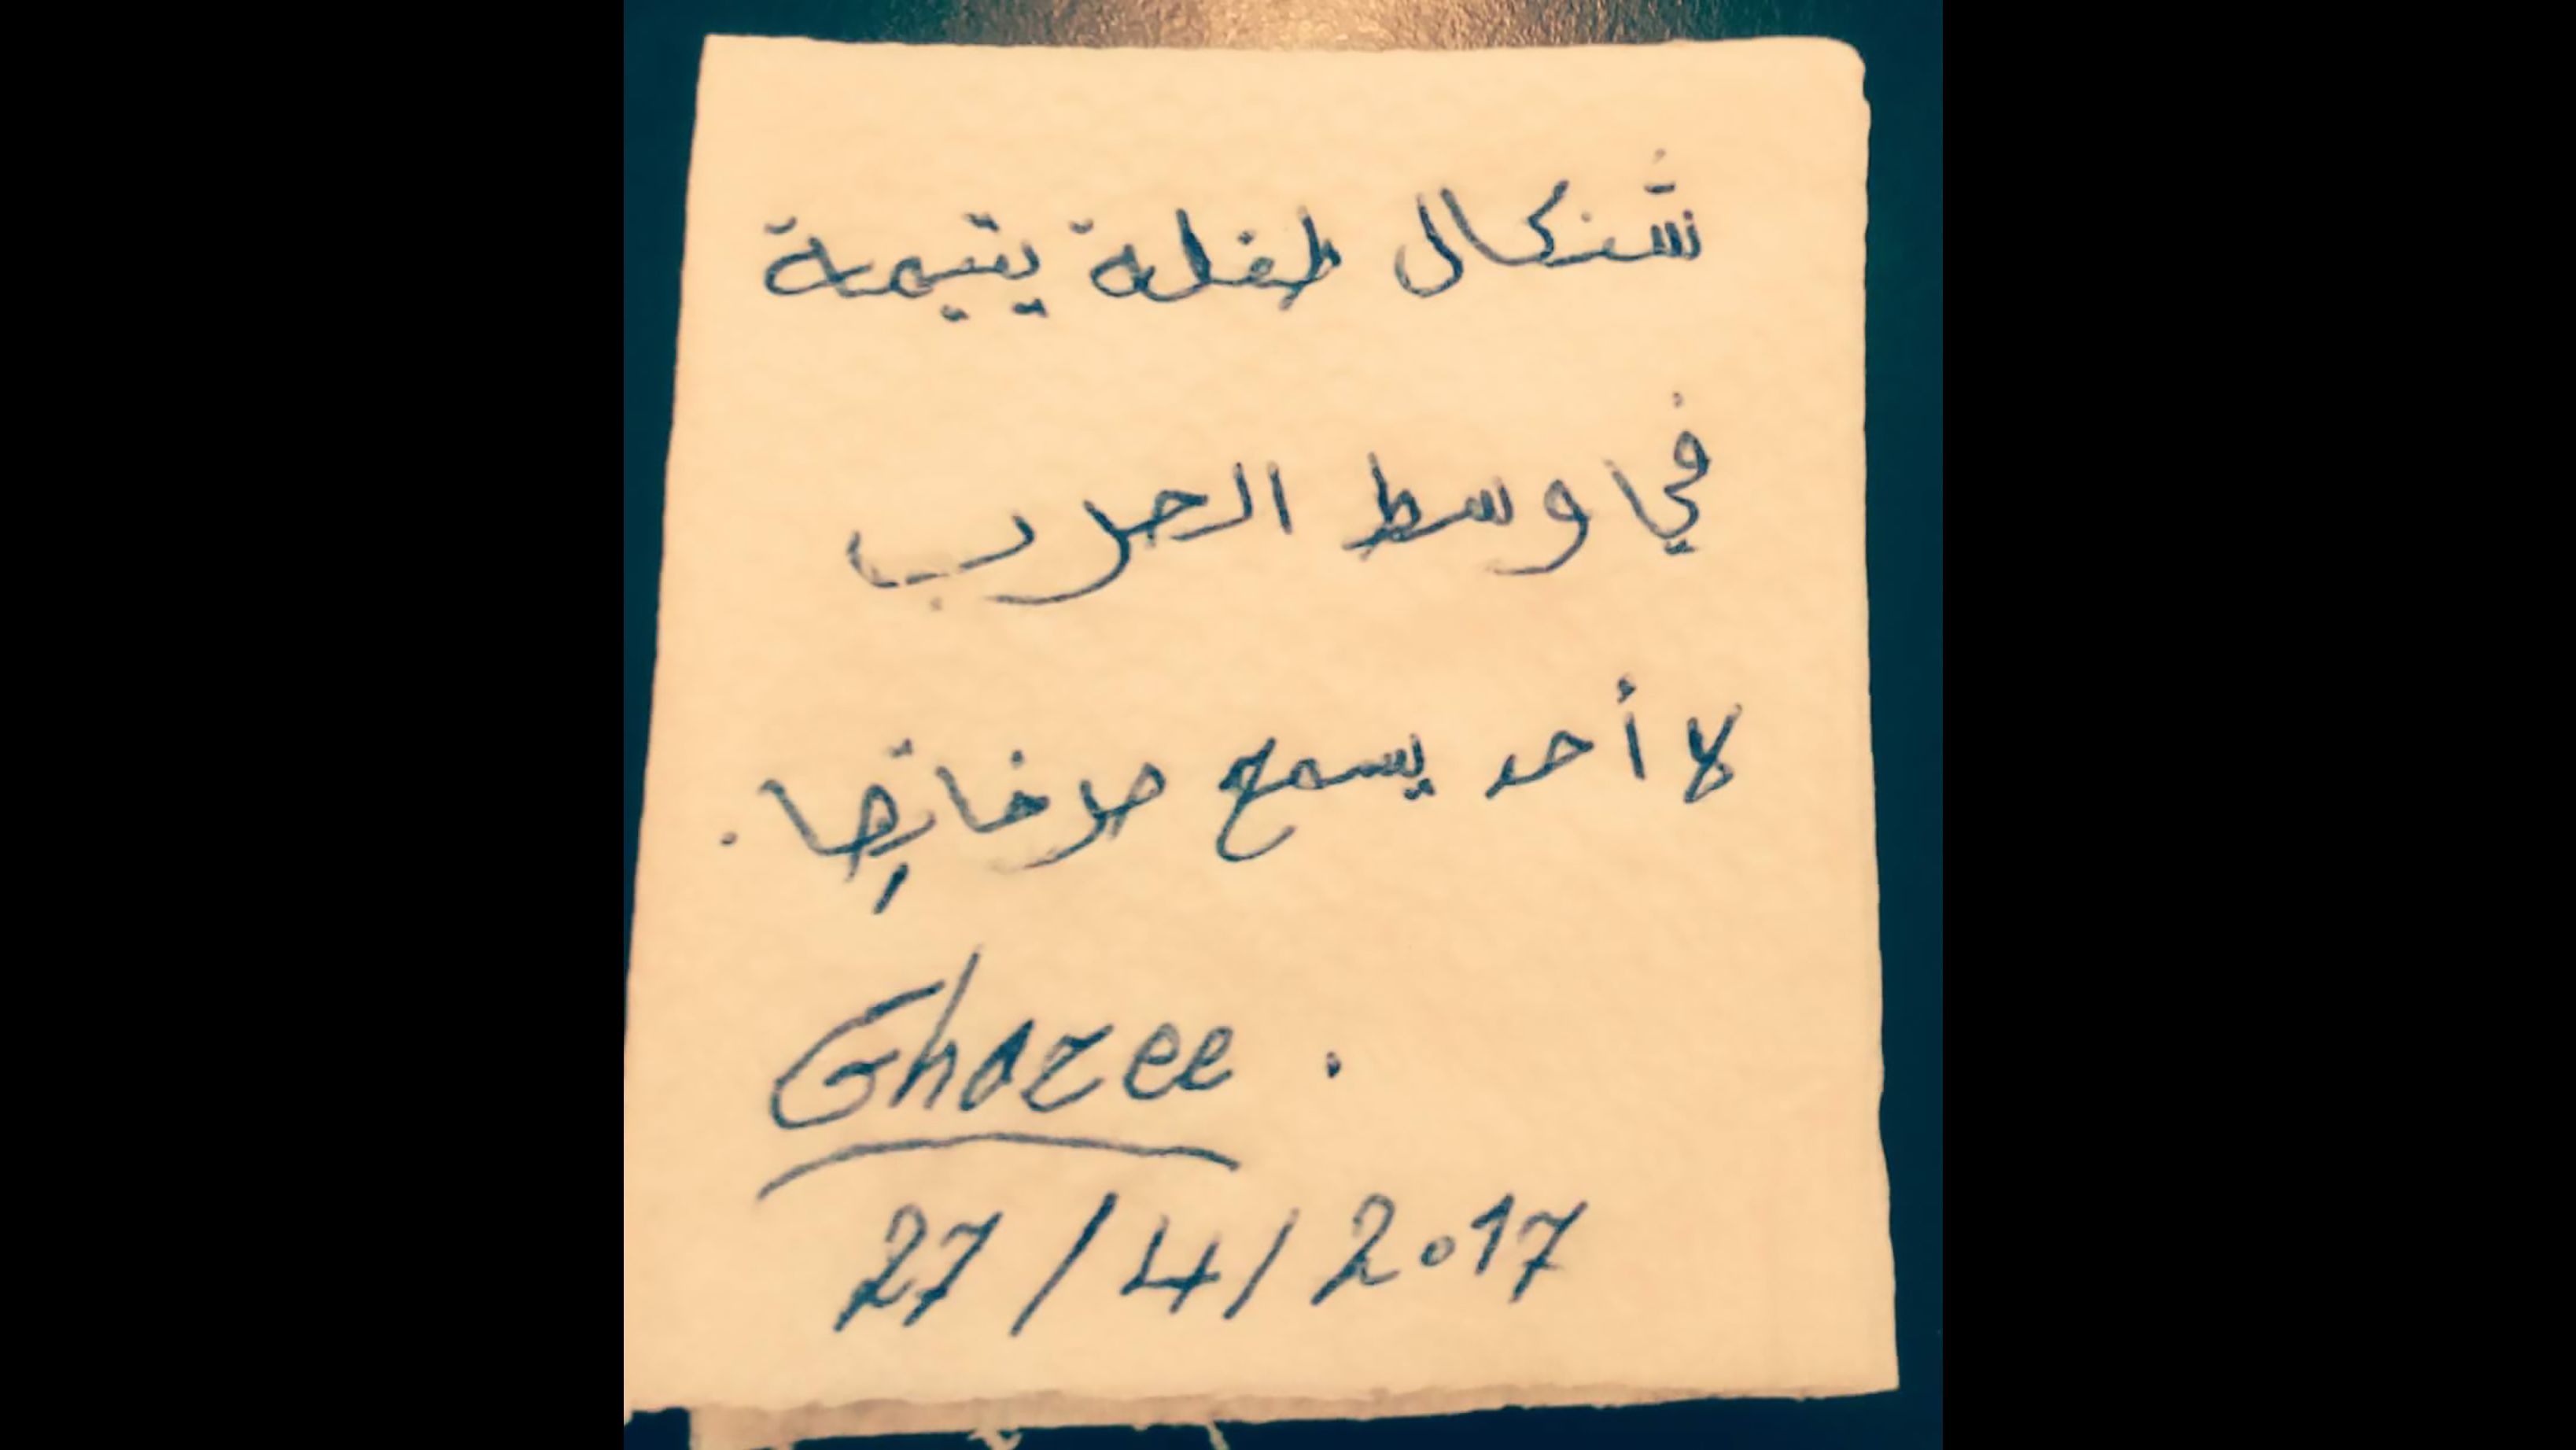 شنكال طفلة يتيمة
في وسط الحرب
لا أحد يسمع صرخاتِها.
Ghazee.
27/4/2017